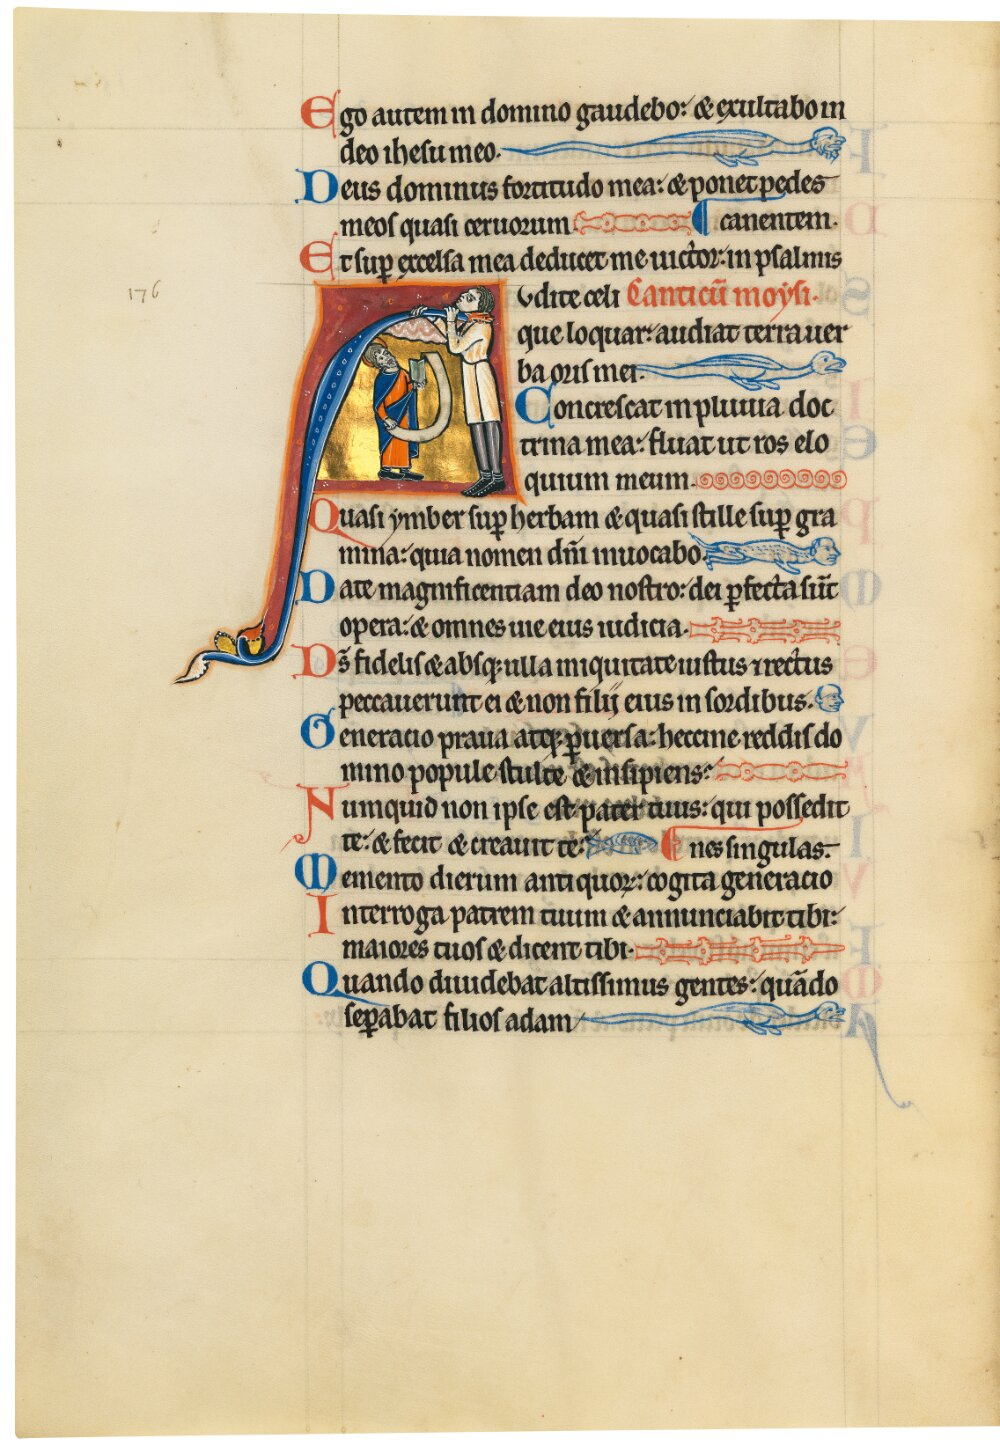 Ego autem in domino gaudebo: & exultabo in
deo ihesu meo.
Deus dominus fortitudo mea: & ponet pedes
meos quasi ceruorum canentem.
Et suꝑ excelsa mea deducet me uictor: in psalmis
Audite celi Canticū moysi.
que loquar: audiat terra uer
ba oris mei.
Concrescat in pluuia doc
trina mea: fluat ut ros elo
quium meum.
Quasi ymber suꝑ herbam & quasi stille suꝑ gra
mina: quia nomen dñi inuocabo.
Date magnificentiam deo nostro: dei ꝑfecta sūt
opera: & omnes uie eius iudicia.
Ds̄ fidelis & absq; ulla iniquitate iustus ⁊ rectus
peccauerunt ei & non filij eius in sordibus.
Generacio praua atq; ꝑuersa: heccine reddis do
mino popule stulte & insipiens:
Numquid non ipse est pater tuus: qui possedit
te: & fecit & creauit te: nes singulas.
Memento dierum antiquoꝝ: cogita generacio
Interroga patrem tuum & annunciabit tibi:
maiores tuos & dicent tibi.
Quando diuidebat altissimus gentes: quādo
seꝑabat filios adam
176